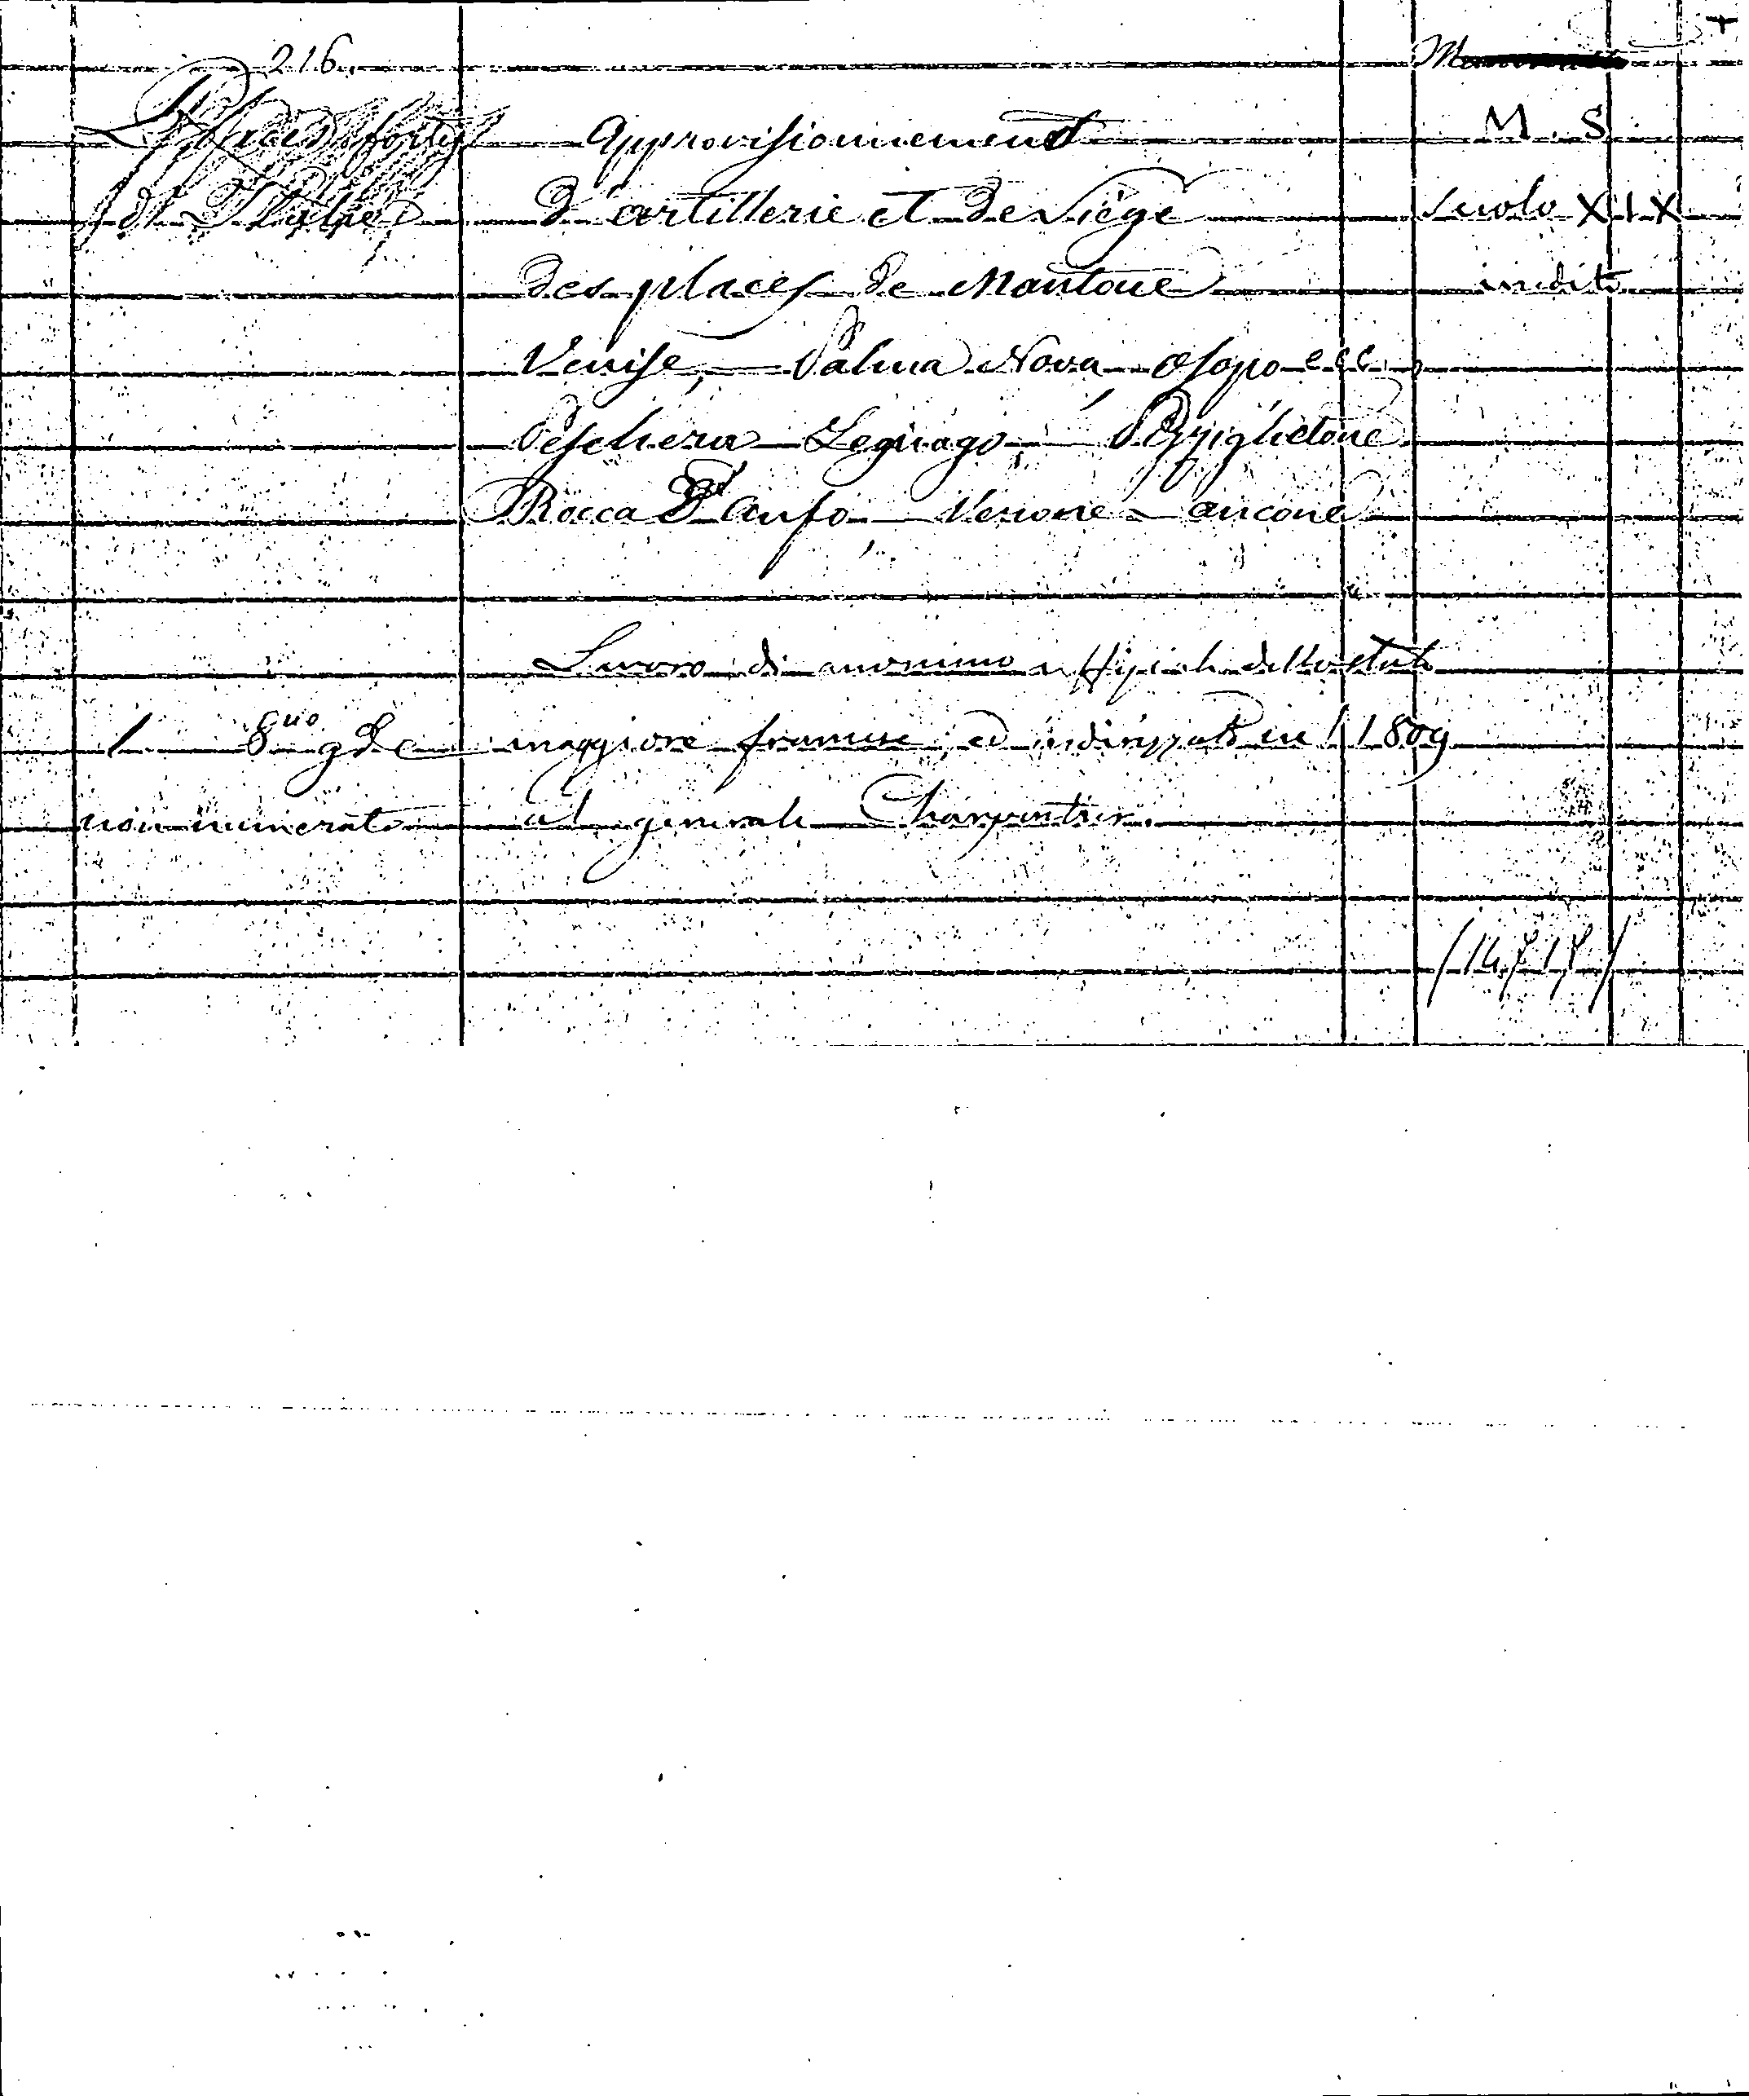 216.
Places fortes
d'Italie
M. S.
Secolo XIX
inedito
Approvisionnement
d'artillerie et de Siège
des places de Mantoue
Venise, Palma Nova Osopo ecc.
Peschiera Legnago Pizzighetone
Rocca d'Anfo Verone Ancone
Lavoro di anonimo uffiziale dello stato
maggiore francese, ed indirizzato in 1809
al generale Charpentier.
1. 8vo gde
non numerato